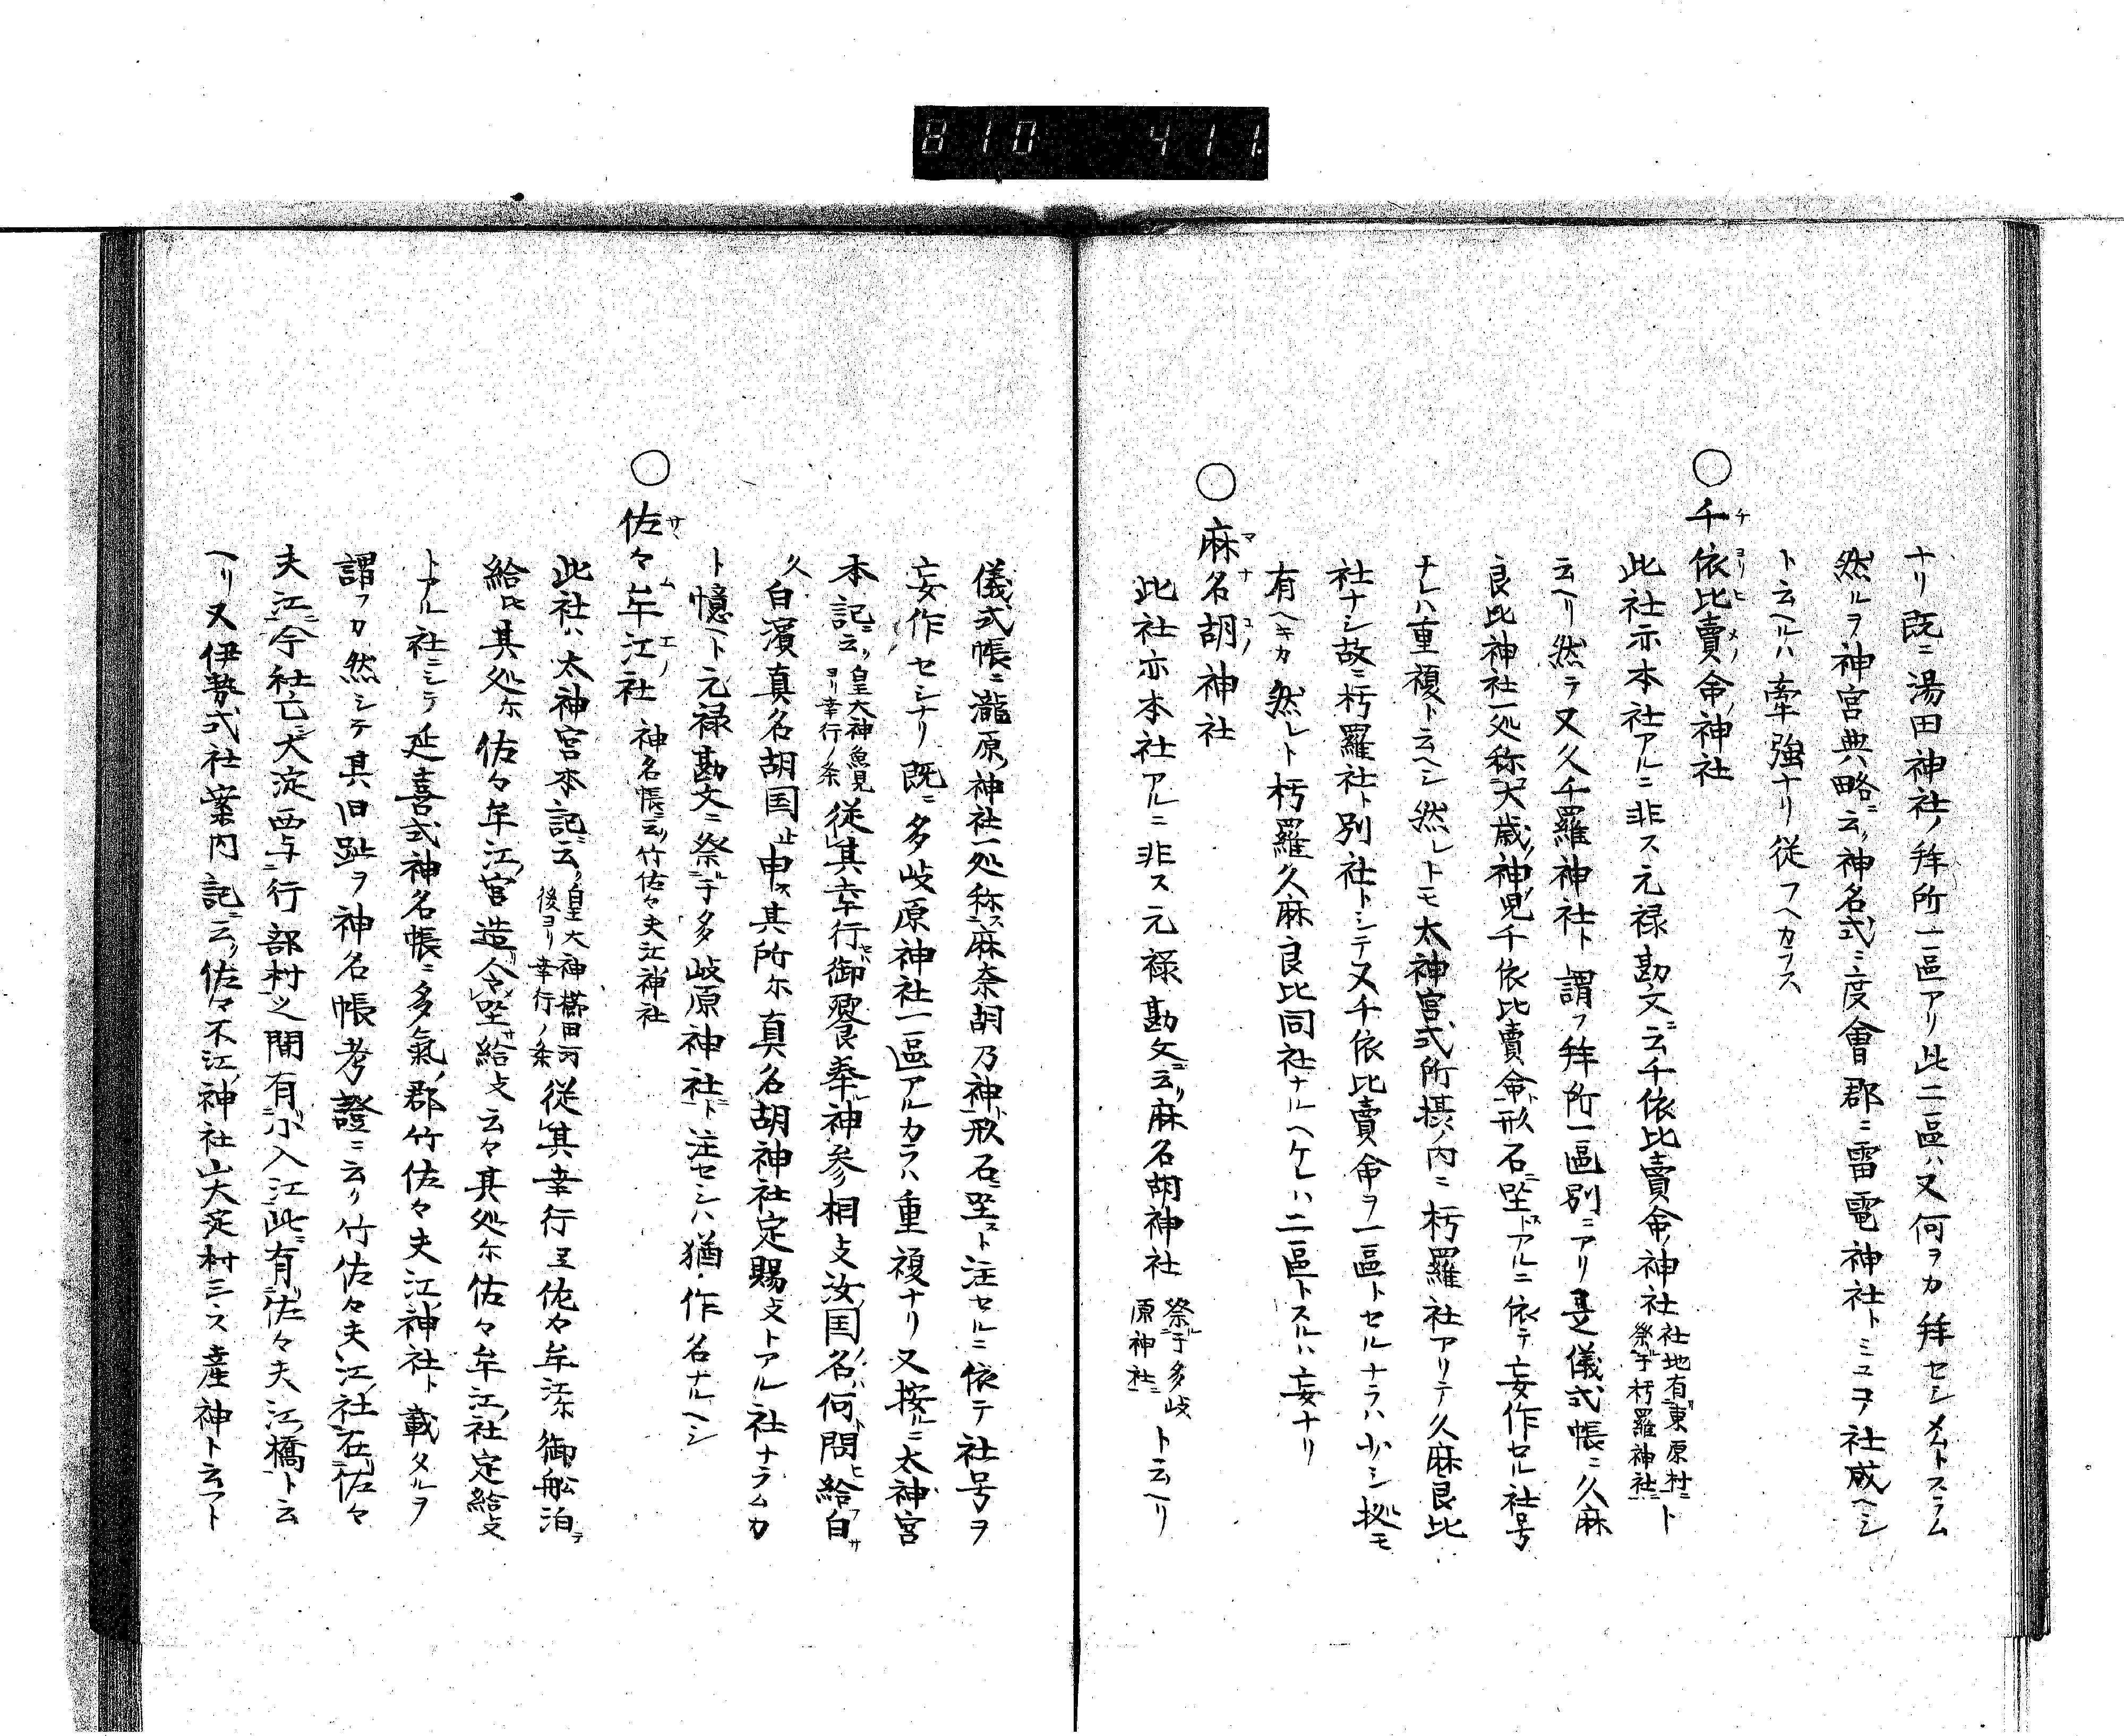 810 411
ナリ既ニ湯田神社ノ拜所一區アリ此二區ハ又何ヲカ拜セシメムトスラム
然ルヲ神宮典略ニ云ク神名式ニ度會郡ニ雷電神社トミユコノ社威ヘシ
ト云ヘルハ牽強ナリ従フヘカラス
○千依比賣命神社
此社亦本社アルニ非ス元禄勘文ニ云千依比賣命ノ神社 社地有東原村ニ祭于朽羅神社ニ ト
云ヘリ然ラ又久千羅神社ト謂フ拜所一區別ニアリ是儀式帳ニ久麻
良比神社一処称大歳神児千依比賣命形石坐トアルニ依テ妄作セル社号
ナレハ重複ト云ヘシ然レトモ太神宮式所摂ノ内ニ朽羅社アリテ久麻良比
社ナシ故ニ朽羅社ト別社トシテ又千依比賣命ヲ一區トセルナラハ少シ拠モ
有ヘキカ然レト朽羅久麻良比同社ナルヘケレハ二區トスルハ妄ナリ
○麻名胡神社
此社亦本社アルニ非ス元禄勘文ニ云リ麻名胡神社 祭于多岐原神社ニ ト云ヘリ
儀式帳ニ瀧原神社一処称麻奈胡乃神形石坐スト注セルニ依テ社号ヲ
妄作セシナリ既ニ多岐原神社一區アルカラハ重複ナリ又按ルニ太神宮
本記ニ云リ皇大神魚見ヨリ幸行ノ条従其幸行御饗奉神参相支汝国名何問給白
久白濱真名胡国止申ス其所尓真名胡神社定賜支トアル社ナラムカ
ト憶ヘト元禄勘文ニ祭于多岐原神社ニト注セシハ猶作名ナルヘシ
○佐々牟江社 神名帳ニ云リ竹佐々夫江神社
此社ハ太神宮本記ニ云リ皇大神櫛田河後ヨリ幸行ノ条従其幸行𠀋佐々牟江尓御舩泊
給比其処尓佐々牟江宮造令坐給支云々其処尓佐々牟江社定給支
トアル社ニシテ延喜式神名帳ニ多氣郡竹佐々夫江神社ト載タルヲ
謂フカ然シテ其旧趾ヲ神名帳考證ニ云リ竹佐々夫江社在佐々
夫江ニ今社亡大淀西与行部村之間有小入江此有佐々夫江橋ト云
ヘリ又伊勢式社案内記ニ云リ佐々不江神社山大淀村ニ云ス産神ト云フト